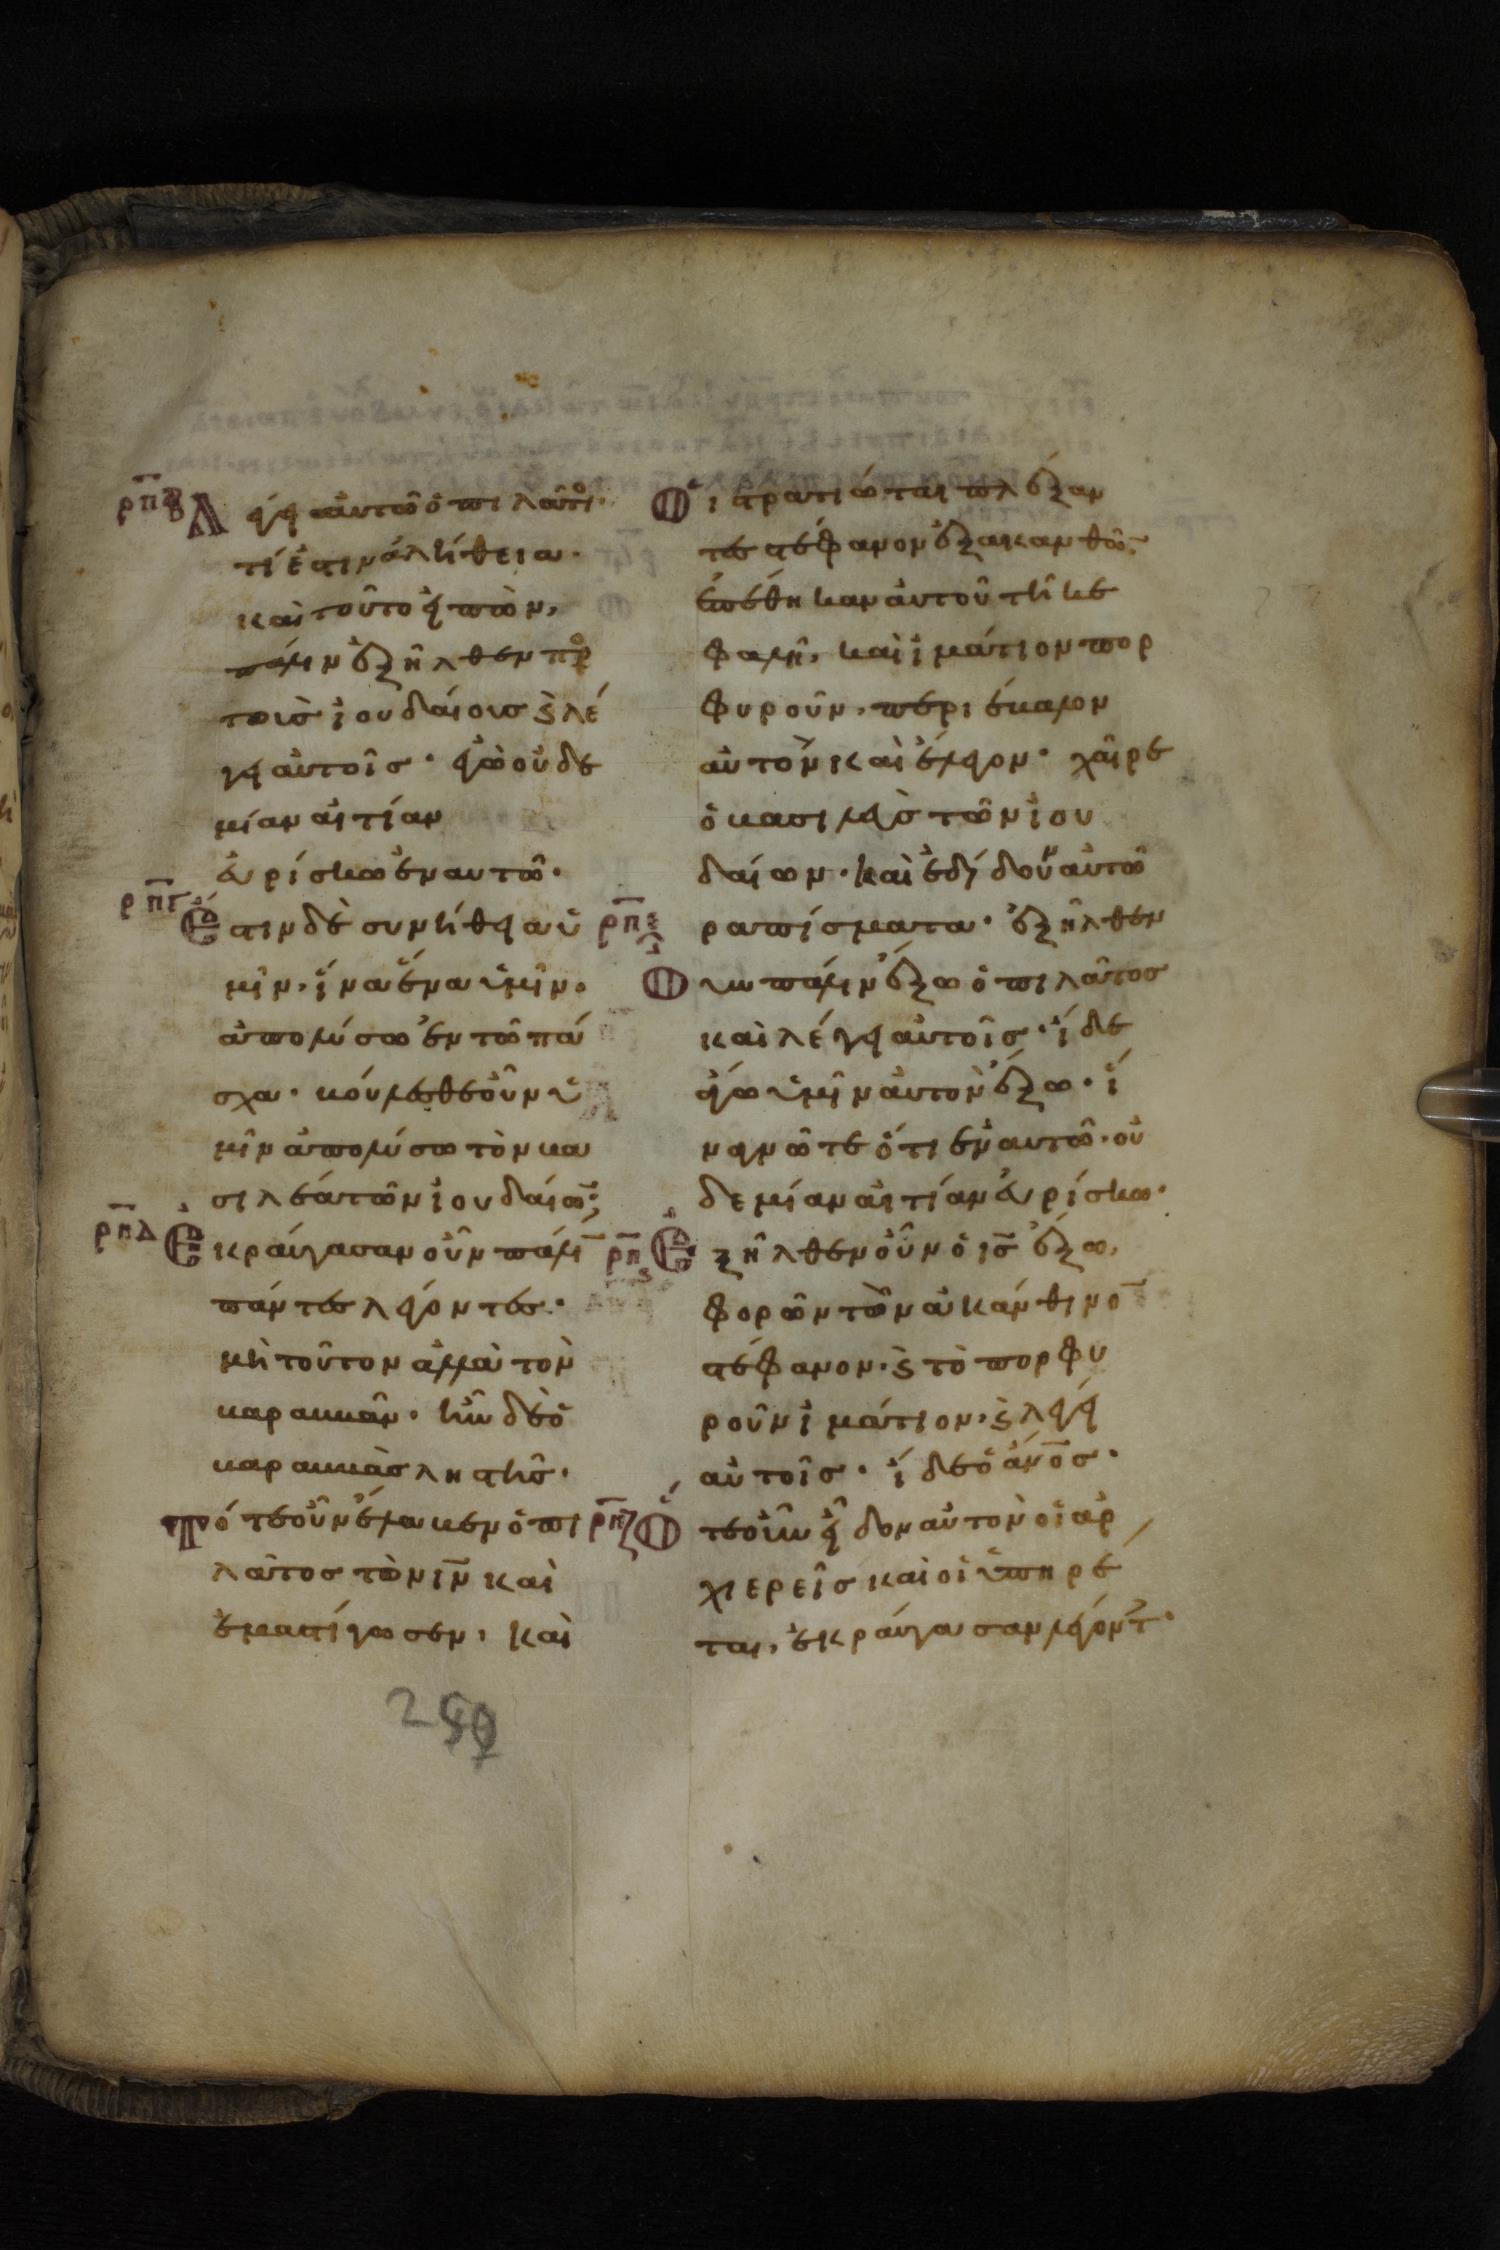 ρπβ Λέγει αὐτῶ ὁ πιλᾶτο·
τί ἐστιν ἀλήθεια·
καὶ τοῦτο εἰπὼν,
πάλιν ἐξῆλθεν πρὸ
τοὺσ ἰουδαίουσ ϗ λέ
γει αὐτοῖσ· ἐγὼ οὐδε
μίαν αἰτίαν
εὑρίσκω ἐν αυτῶ·
ρπγ Ἔστιν δὲ συνήθεια ὑ
μῖν, ἵνα ἕνα ὑμῖν·
ἀπολύσω ἐν τῶ πά
σχα· βούλεσθε οὖν ὑ
μῖν ἀπολύσω τὸν βα
σιλέα τῶν ἰουδαίω;
ρπδ Ἐκράυγασαν οὖν πάλι
πάντεσ λέγοντεσ·
μὴ τοῦτον ἀλλὰ τὸν
βαραββᾶν· ἦν δὲ ὁ
βαραββὰσ ληστὴσ·
Τότε οὖν ἔλαβεν ὁ πι
λᾶτοσ τὸν ιν καὶ
ἐμαστίγωσεν, καὶ
Οἱ στρατιῶται πλέξαν
τεσ στέφανον ἐξ ἀκανθῶ
ἐπέθηκαν ἀυτοῦ τῆ κε
φαλῆ, καὶ ἱμάτιον πορ
φυροῦν, περιέβαλον
αὐτὸν καὶ ἔλεγον· χαῖρε
ὁ βασιλεὺσ τῶν ἰου
δαίων· καὶ ἐδίδουν αὐτῶ
ρπε ραπίσματα· ἐξῆλθεν
Οὖν πάλιν ἔξω ὁ πιλᾶτοσ
καὶ λέγει αὐτοῖσ· ἴδε
ἄγω ὑμῖν ἀυτὸν ἔξω· ἵ
να γνῶτε ὅτι ἐν αυτῶ· οὐ
δεμίαν αἰτίαν εὑρίσκω·
ρπς Ἐξῆλθεν οὖν ὁ ισ ἔξω,
φορῶν τὸν ἀκάνθινο
στέφανον· ϗ τὸ πορφυ
ροῦν ἱμάτιον, ϗ λέγει
αὐτοῖσ· ἴδε ὁ ἄνοσ·
ρπζ Ὅτε οὖν εἶδον αὐτὸν οἱ ἀρ
χιερεῖσ καὶ οἱ ὑπηρέ
ται, ἐκράυγασαν λέγοντ·
250